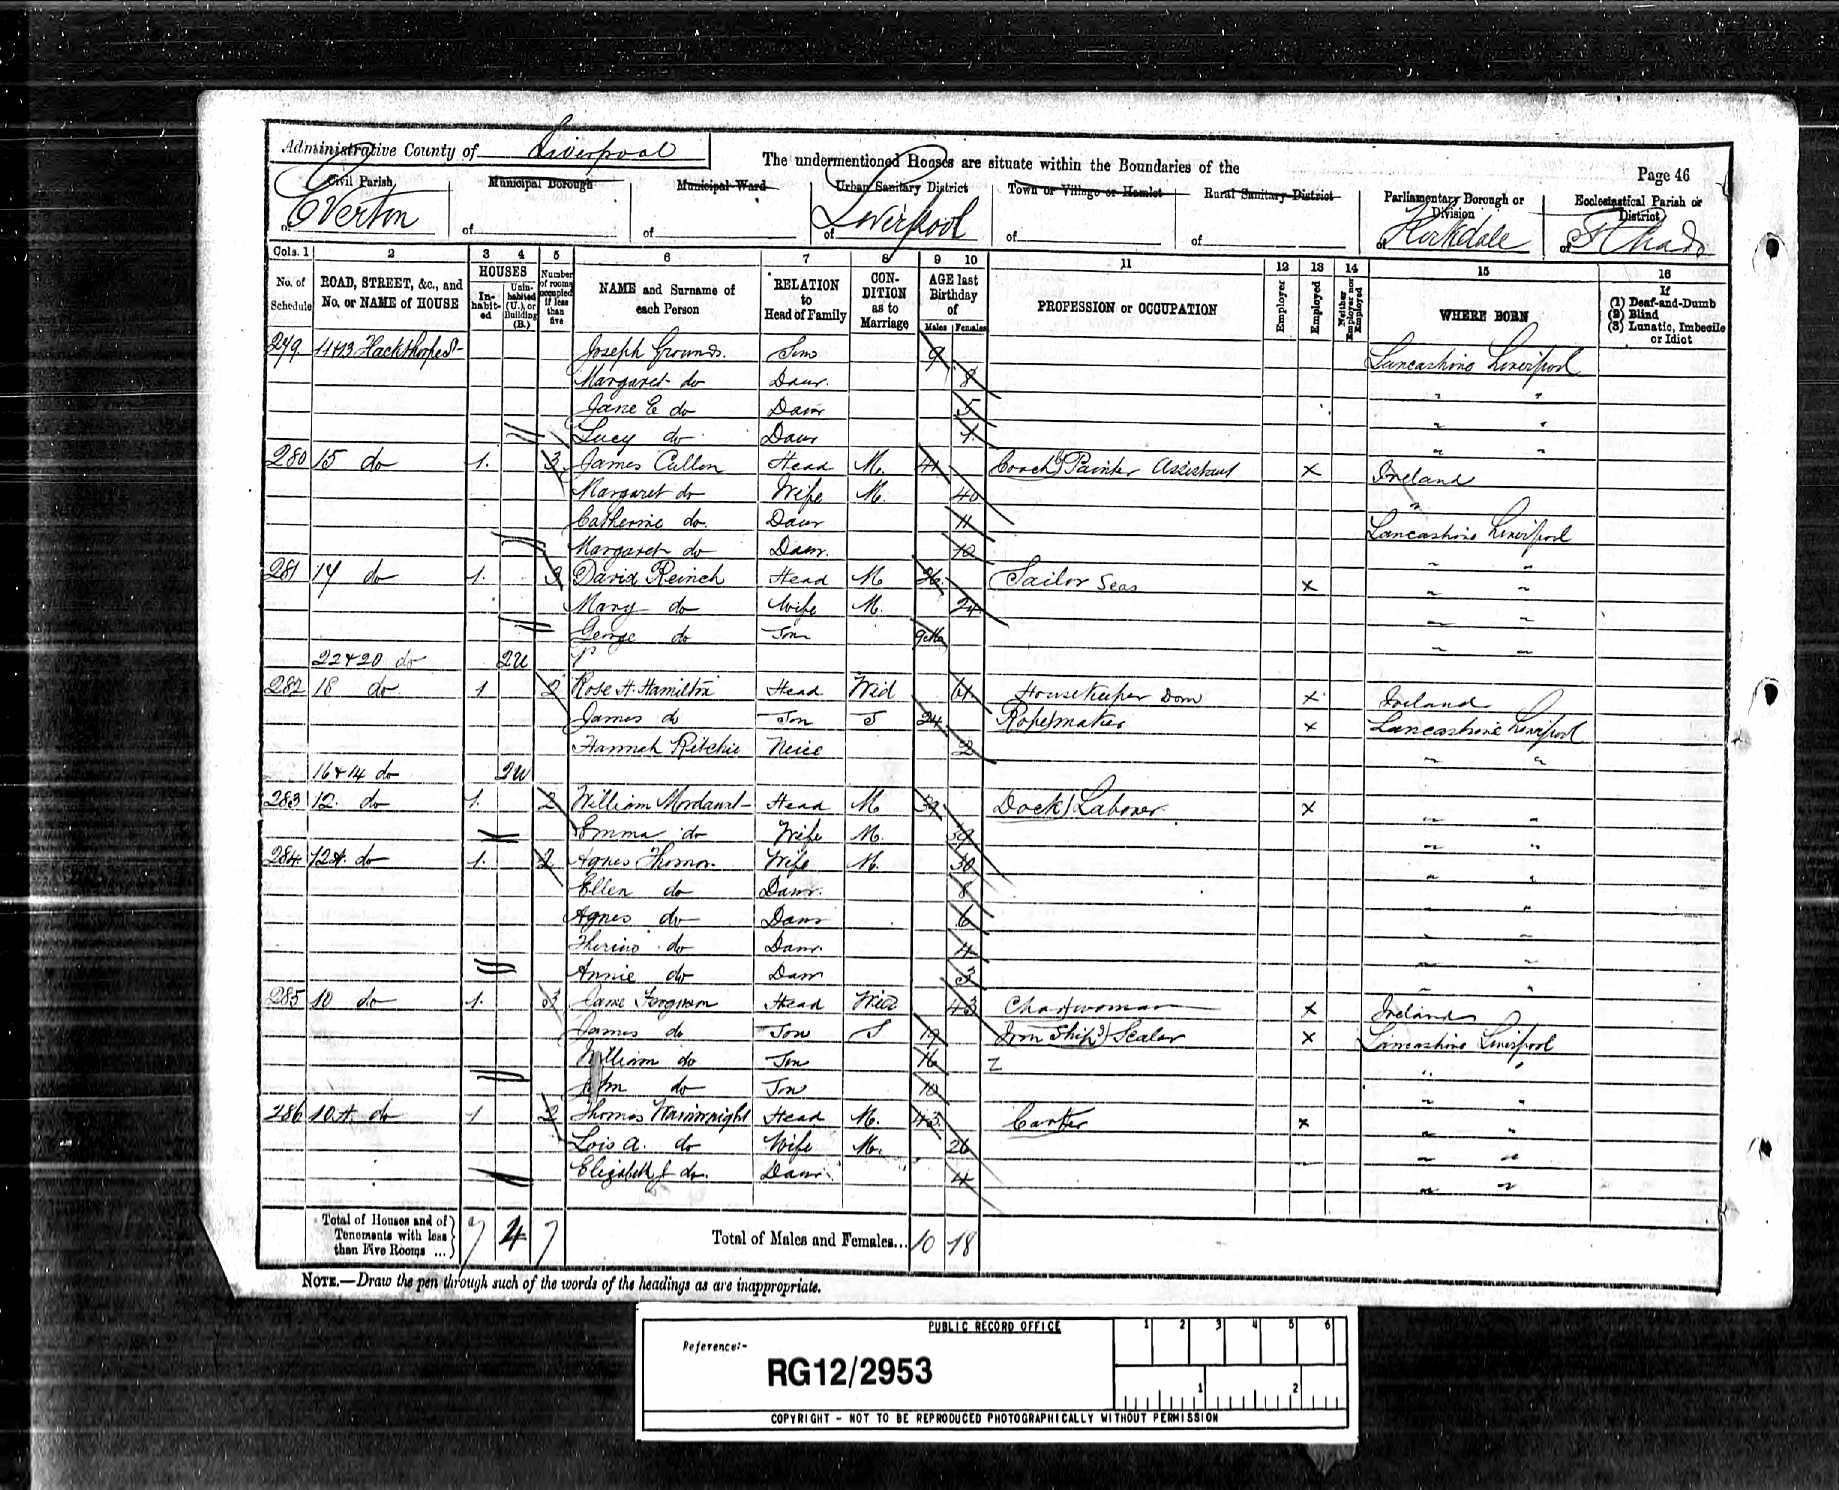 Administrative County of Liverpool
The undermentioned Houses are situate within the Boundaries of the
Page 46
Civil Parish of Everton
Municipal Borough of
Municipal Ward of
Urban Sanitary District of Liverpool
Town or Village or Hamlet of
Rural Sanitary District of
Parliamentary Borough or Division of Kirkdale
Ecclesiastical Parish or District of St Chads
Cols. 1 2 3 4 5 6 7 8 9 10 11 12 13 14 15 16
No. of Schedule
ROAD, STREET, &c., and No. or NAME of HOUSE
HOUSES
In-habit-ed
Unin-habited (U.), or Building (B.)
Number of rooms occupied if less than five
NAME and Surname of each Person
RELATION to Head of Family
CON-DITION as to Marriage
AGE last Birthday of
Males Females
PROFESSION or OCCUPATION
Employer
Employed
Neither Employer nor Employed
WHERE BORN
If (1) Deaf-and-Dumb (2) Blind (3) Lunatic, Imbecile or Idiot
279 11&13 Hackthorpe St Joseph Grounds Son 9 Lancashire Liverpool
Margaret do Daur 8 " "
Jane E do Daur 5 " "
Lucy do Daur 1 " "
280 15 do 1 3 James Cullen Head M. 41 Coach Painter Assistant x Ireland
Margaret do Wife M. 40 "
Catherine do Daur 11 Lancashire Liverpool
Margaret do Daur 10 " "
281 17 do 1 3 David Reinch Head M 26 Sailor Seas x " "
Mary do Wife M. 24 " "
George do Son 9 Mo " "
22 & 20 do 2U
282 18 do 1 2 Rose H. Hamilton Head Wid 61 Housekeeper Dom x Ireland
James do Son S 24 Ropemaker x Lancashire Liverpool
Hannah Ritchie Neice 2 " "
16 & 14 do 2U
283 12 do 1 2 William Head M 39 Dock Laborer x " "
Emma do Wife M. 39 " "
284 12A do 1 2 Agnes Wife M. 30 " "
Ellen do Daur 8 " "
Agnes do Daur 6 " "
do Daur 4 " "
Annie do Daur 3 " "
285 10 do 1 3 Jane Ferguson Head Wid 43 Charwoman x Ireland
James do Son S 19 Iron Ship Scaler x Lancashire Liverpool
William do Son 16 " "
John do Son 10 " "
286 10A do 1 2 Thomas Wainwright Head M. 43 Carter x " "
Lois A. do Wife M. 26 " "
Elizabeth J do Daur 4 " "
Total of Houses and of Tenements with less than Five Rooms ... 7 4 7 Total of Males and Females... 10 18
NOTE.—Draw the pen through such of the words of the headings as are inappropriate.
PUBLIC RECORD OFFICE
1 2 3 4 5 6
Reference:-
RG12/2953
1 2
COPYRIGHT - NOT TO BE REPRODUCED PHOTOGRAPHICALLY WITHOUT PERMISSION